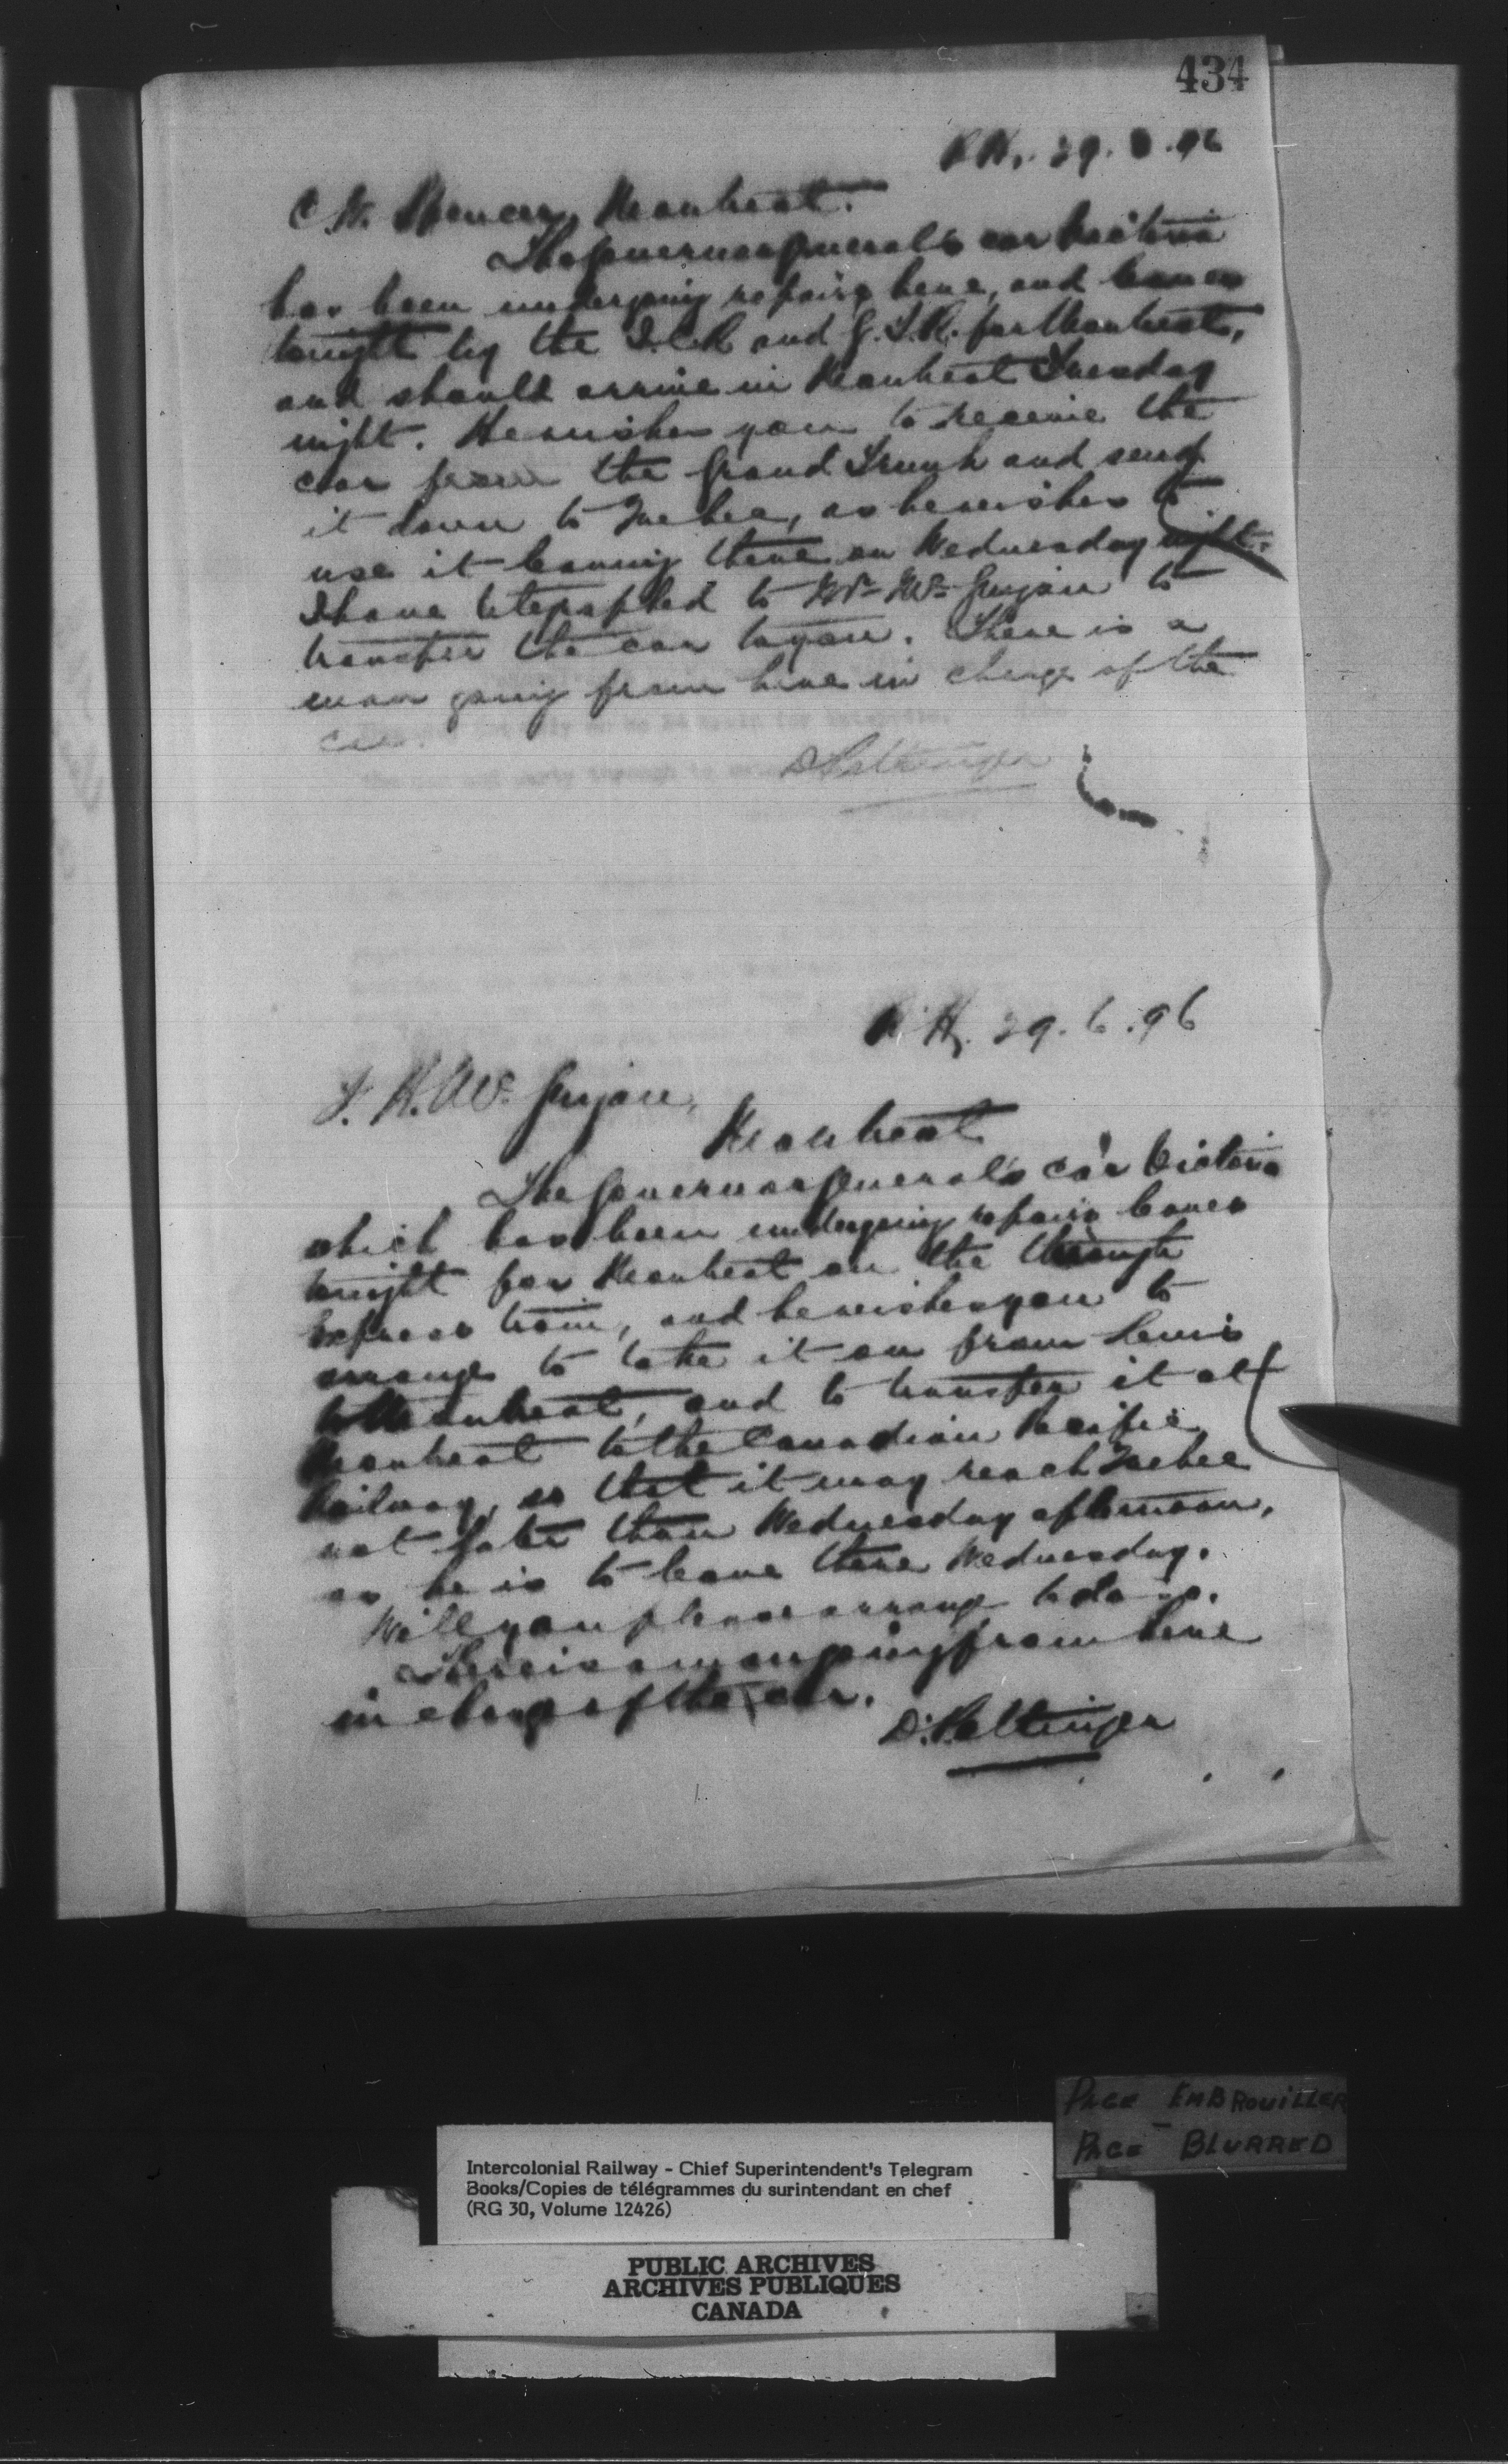 434
29. 6 .96
C.W. Spencer, Montreal.
The Governor General's car Victoria
has been undergoing repairs here, and leaves
tonight by the I.C.R and G.T.R. for Montreal,
and should arrive in Montreal Tuesday
night. He wishes you to receive the
car from the Grand Trunk and send
it down to Quebec, as he wishes to
use it leaving there on Wednesday night.
I have telegraphed to Mr Mc Guigan to
transfer the car to you. There is a
man going from here in charge of the
car.
D Pottinger
29. 6 .96
F. H. Mc Guigan,
Montreal
The Governor General's car Victoria
which has been undergoing repairs leaves
tonight for Montreal on the through
Express train, and he wishes you to
arrange to take it on from Levis
to Montreal, and to transfer it at
Montreal to the Canadian Pacific
Railway, so that it may reach Quebec
not later than Wednesday afternoon,
as he is to leave there Wednesday.
Will you please arrange to do so.
There is a man going from here
in charge of the car.
D. Pottinger
PAGE EMBROUILLER
PAGE - BLURRED
Intercolonial Railway - Chief Superintendent's Telegram
Books/Copies de télégrammes du surintendant en chef
(RG 30, Volume 12426)
PUBLIC ARCHIVES
ARCHIVES PUBLIQUES
CANADA